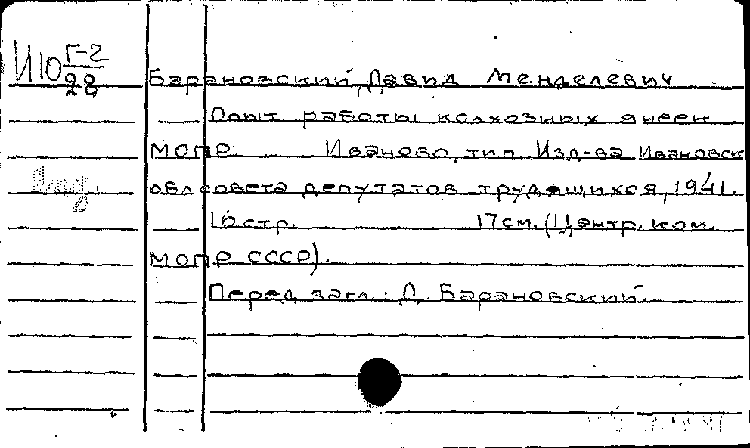 И10 Г-2
28
Барановский, Давид Менделевич
Опыт работы колхозных ячеек
МОПР. Иваново, тип. Изд-ва Ивановск.
обл. совета депутатов трудящихся, 1941.
16 стр. 17 см. (Центр. ком.
МОПР СССР).
Перед загл.: Д. Барановский.